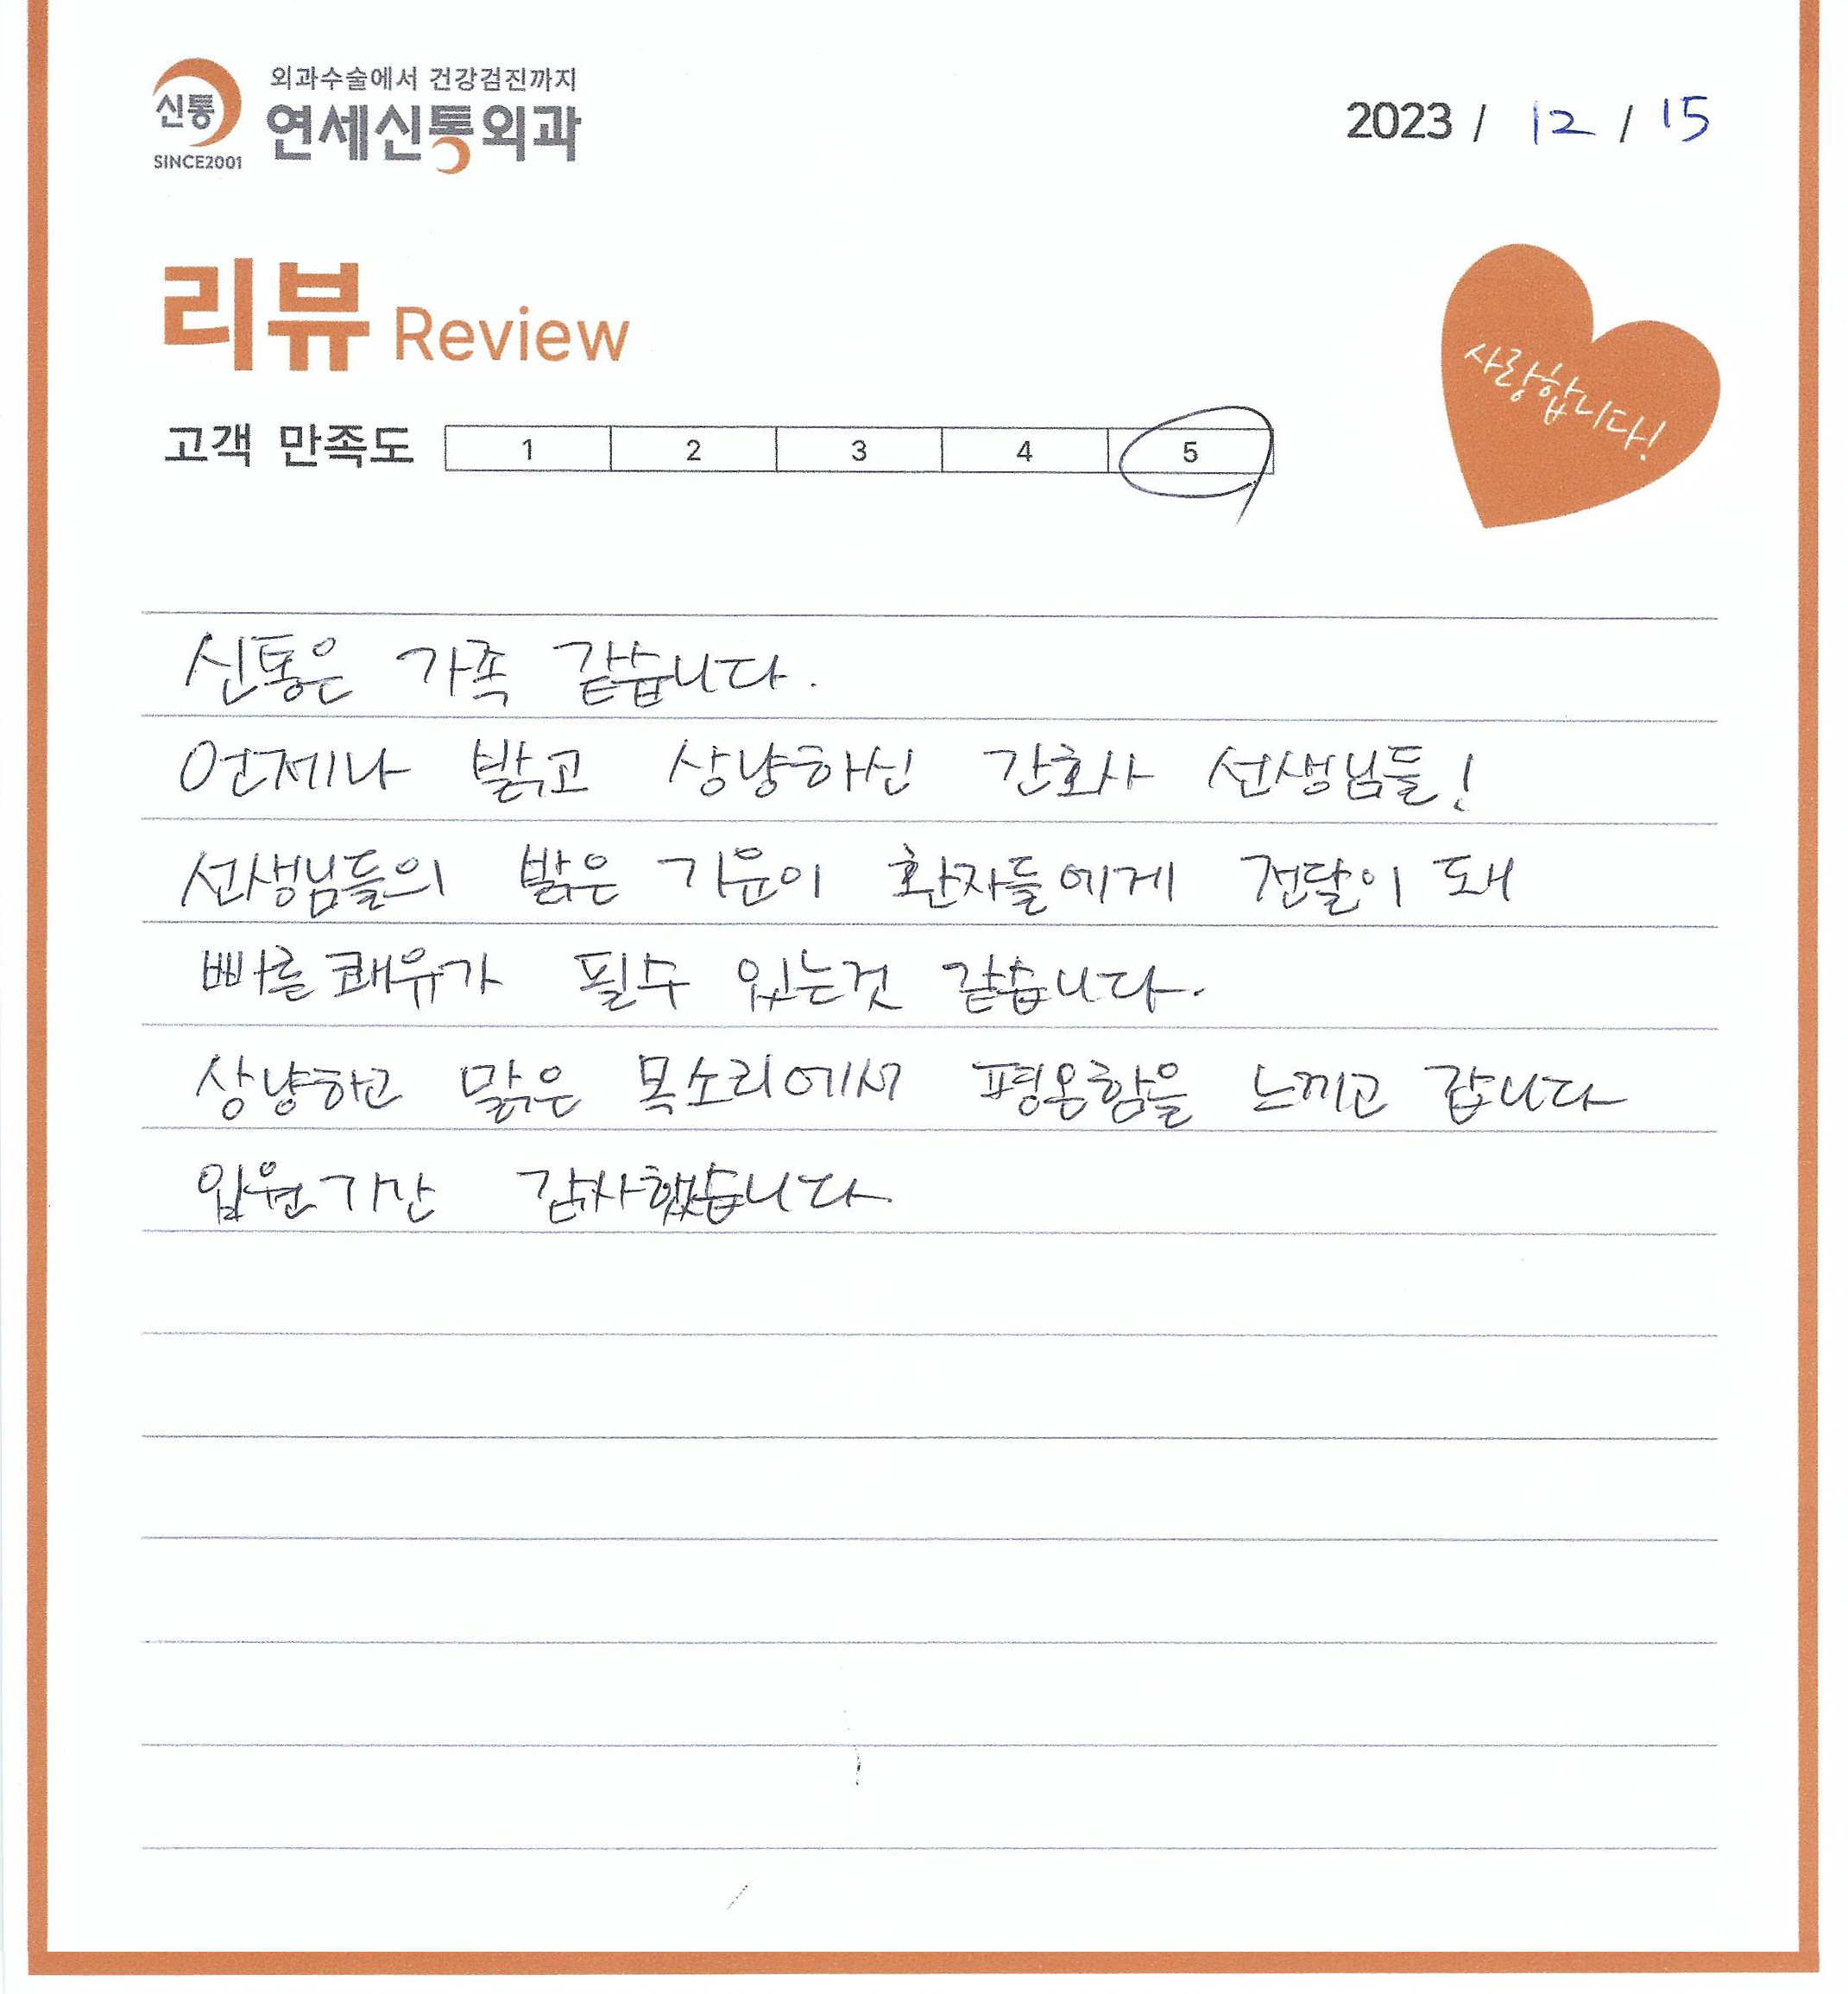 신통
SINCE2001
외과수술에서 건강검진까지
연세신통외과
2023 / 12 / 15
리뷰 Review
사랑합니다!
고객 만족도 1 2 3 4 5
신통은 가족 같습니다.
언제나 밝고 상냥하신 간호사 선생님들!
선생님들의 밝은 기운이 환자들에게 전달이 돼
빠를 쾌유가 될수 있는것 같습니다.
상냥하고 맑은 목소리에서 평온함을 느끼고 갑니다
입원기간 감사했습니다